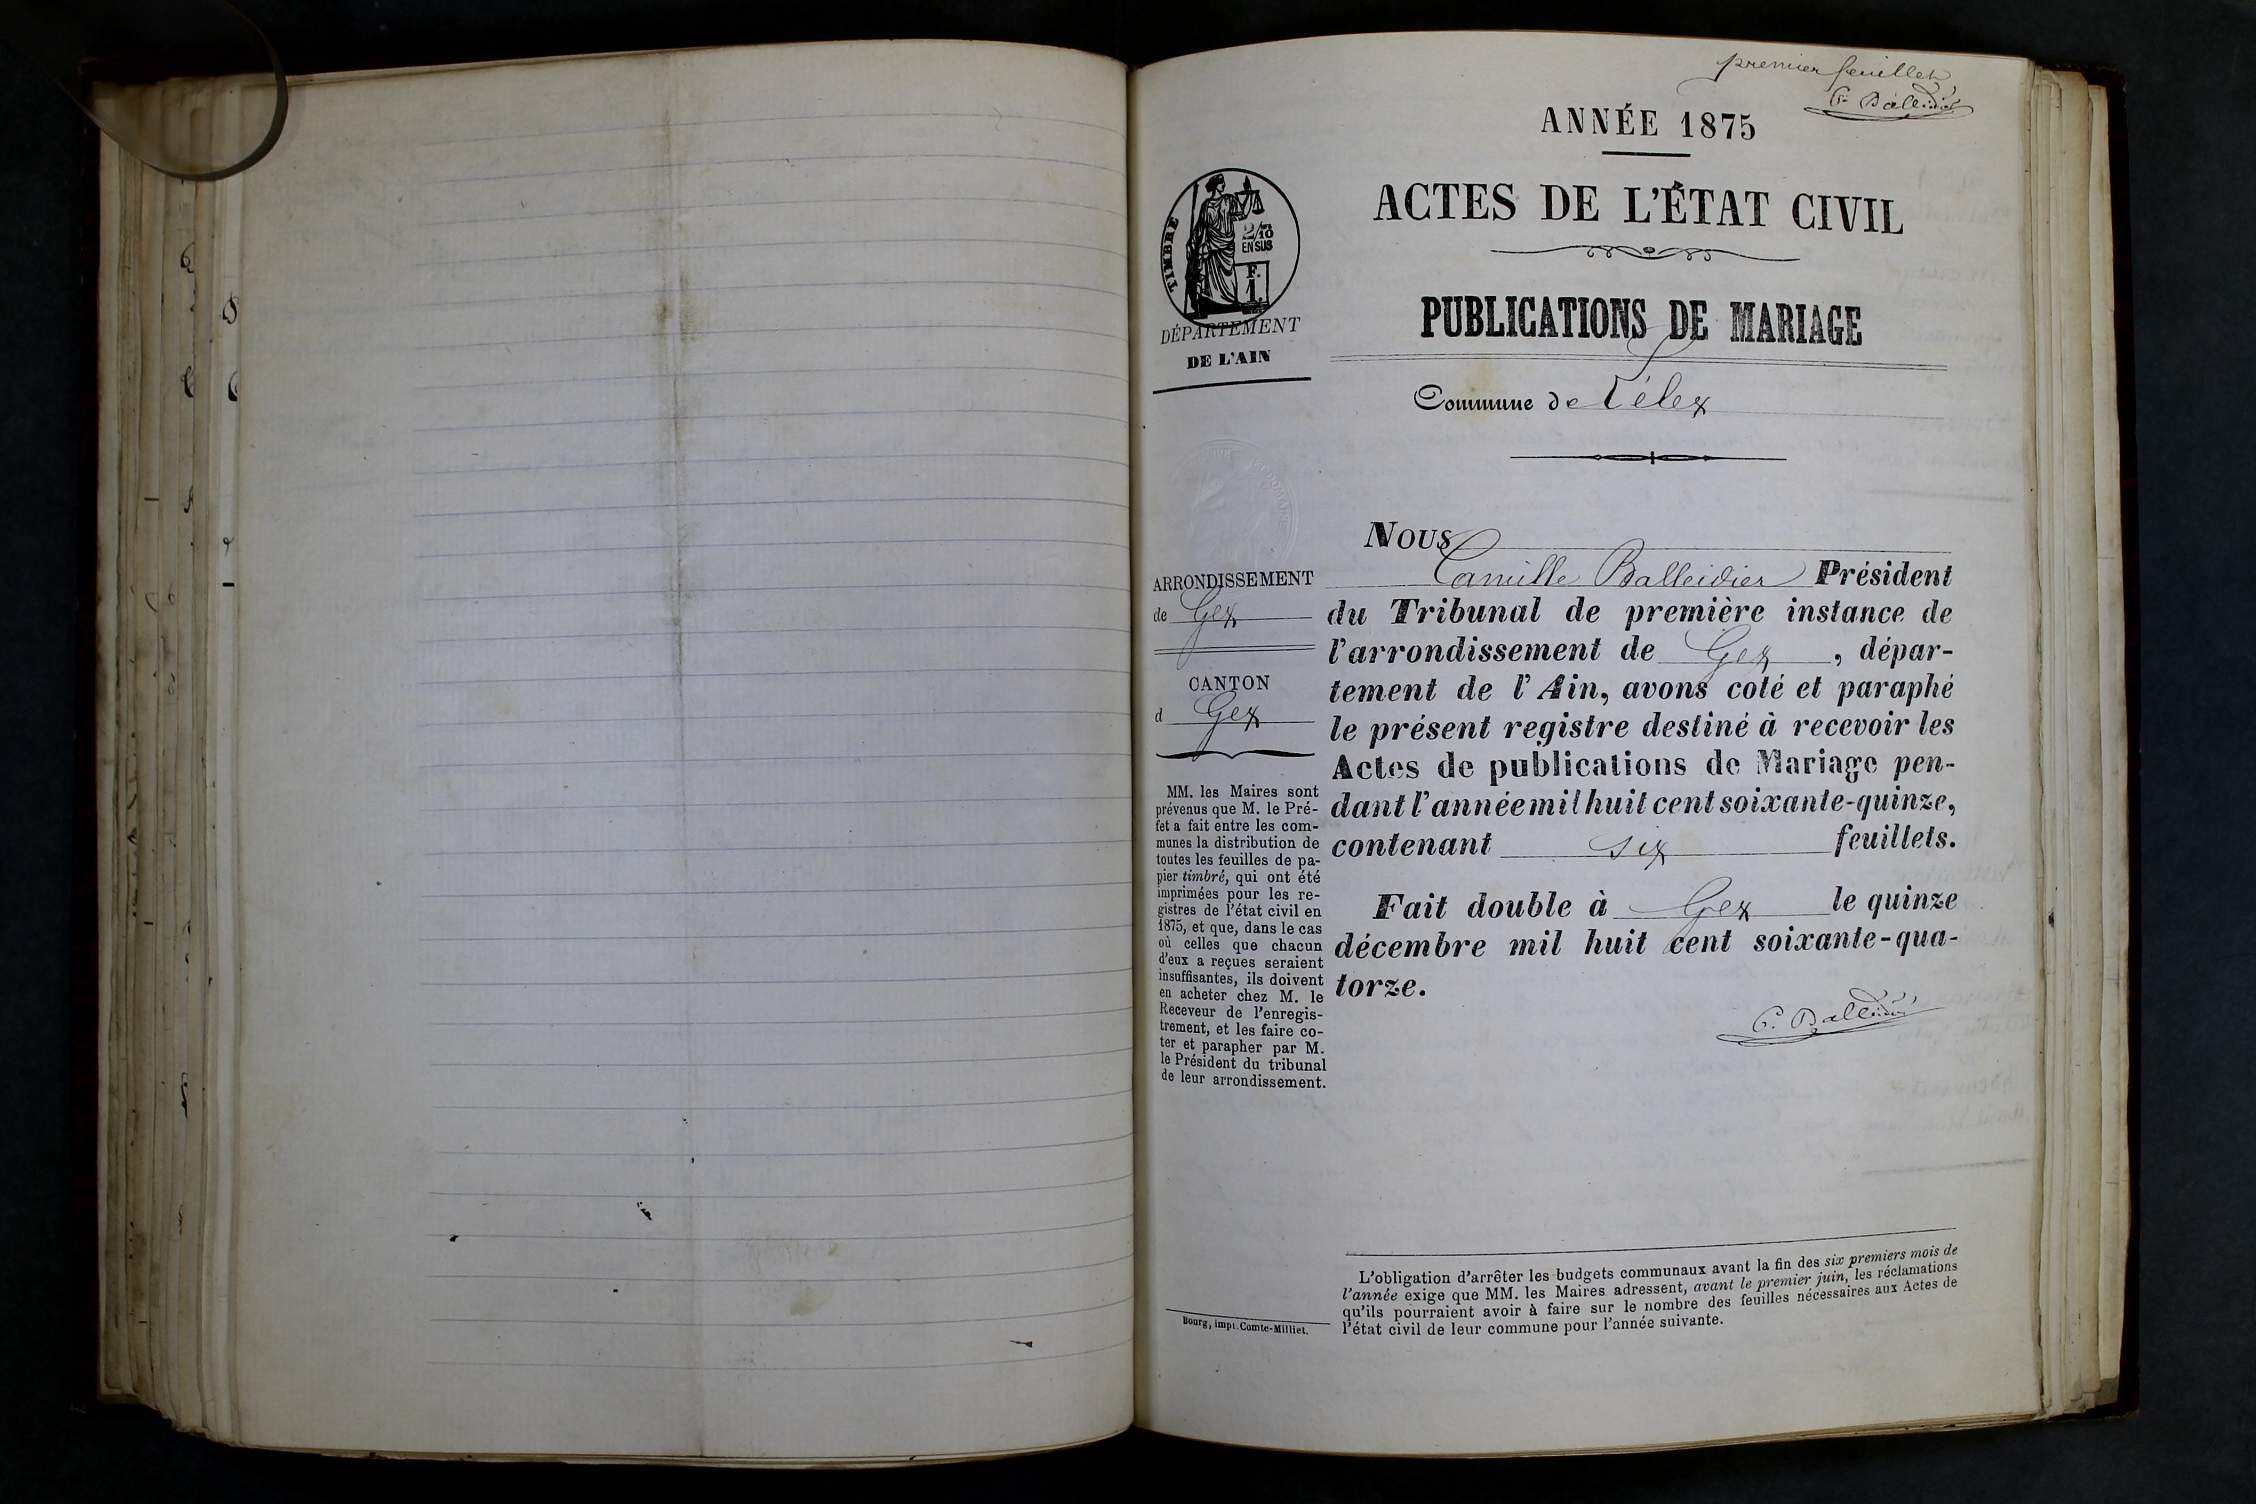 premier feuillet
C. Balleidier
ANNÉE 1875
ACTES DE L'ÉTAT CIVIL
PUBLICATIONS DE MARIAGE
Commune de Lélex
TIMBRE
2/10
EN SUS
F.
1.
DÉPARTEMENT
DE L'AIN
ARRONDISSEMENT
de Gex
CANTON
d Gex
MM. les Maires sont
prévenus que M. le Pré-
fet a fait entre les com-
munes la distribution de
toutes les feuilles de pa-
pier timbré, qui ont été
imprimées pour les re-
gistres de l'état civil en
1875, et que, dans le cas
où celles que chacun
d'eux a reçues seraient
insuffisantes, ils doivent
en acheter chez M. le
Receveur de l'enregis-
trement, et les faire co-
ter et parapher par M.
le Président du tribunal
de leur arrondissement.
Bourg, impr. Comte-Milliet.
Nous
Camille Balleidier Président
du Tribunal de première instance de
l'arrondissement de Gex, dépar-
tement de l'Ain, avons coté et paraphé
le présent registre destiné à recevoir les
Actes de publications de Mariage pen-
dant l'année mil huit cent soixante-quinze,
contenant six feuillets.
Fait double à Gex le quinze
décembre mil huit cent soixante-qua-
torze.
C. Balleidier
L'obligation d'arrêter les budgets communaux avant la fin des six premiers mois de
l'année exige que MM. les Maires adressent, avant le premier juin, les réclamations
qu'ils pourraient avoir à faire sur le nombre des feuilles nécessaires aux Actes de
l'état civil de leur commune pour l'année suivante.